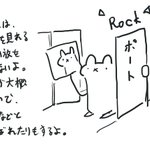 は、
を見れる
を
いよ。
大
で、
などと
れたりもするよ。
Rock
ポート